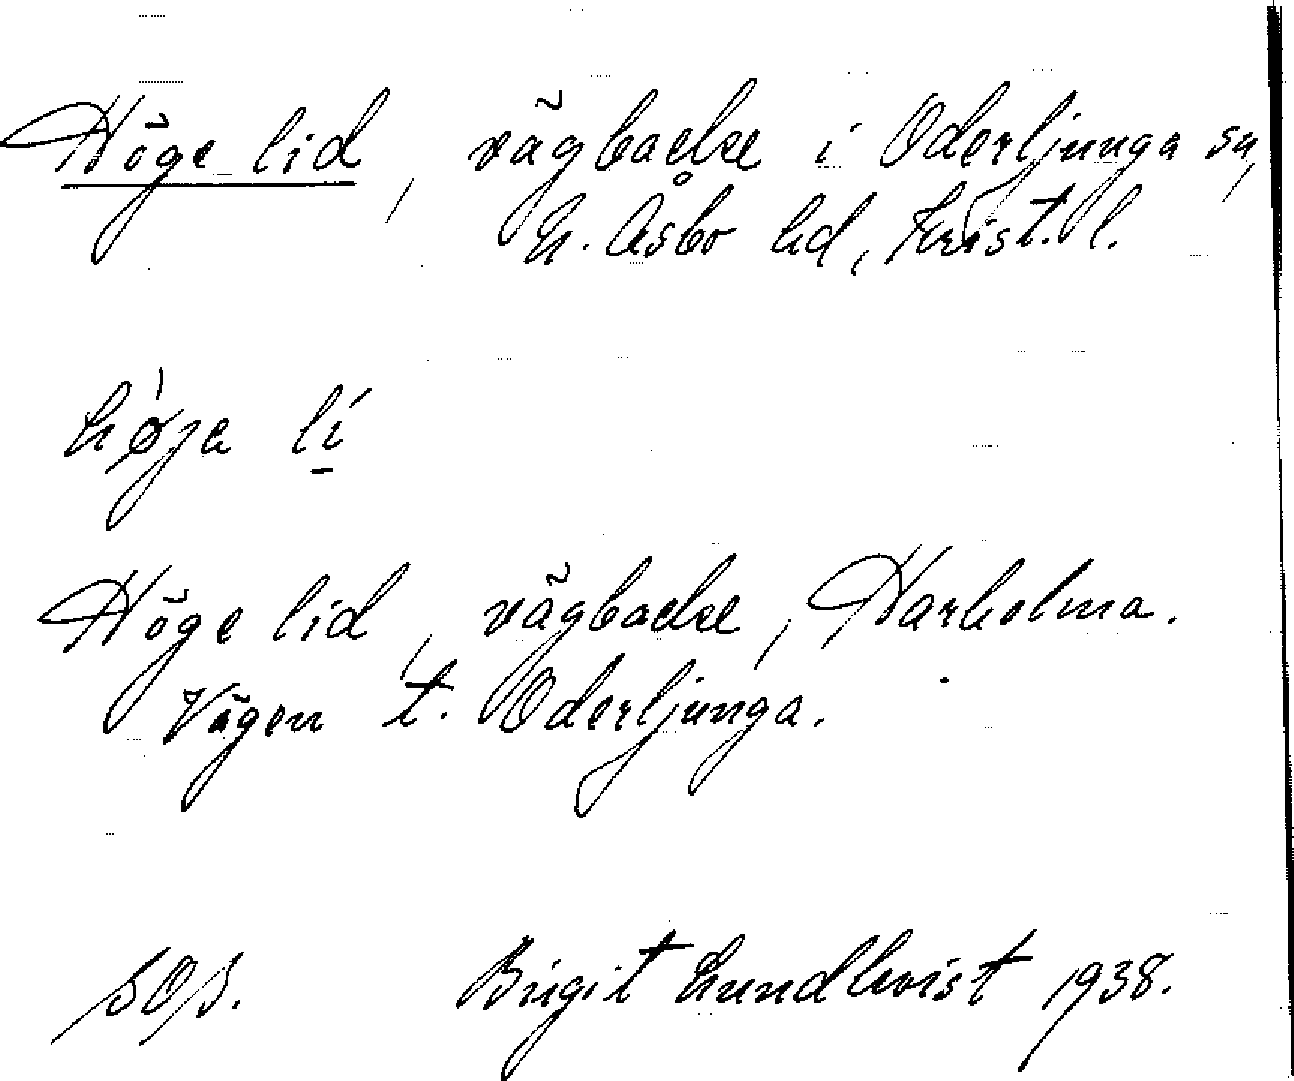 Höge lid, vägbacke i Oderljunga sn,
N. Åsbo hd, Krist. l.
høja li
Höge lid, vägbacke, Harholma.
Vägen t. Oderljunga.
SOS. Birgit Lundkvist 1938.